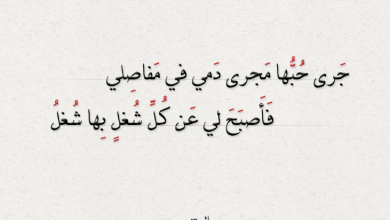 جَرى حُبُّها مَجرى دَمي في مَفاصِلي
فَأَصبَحَ لي عَن كُلِّ شُغلٍ بِها شُغلُ